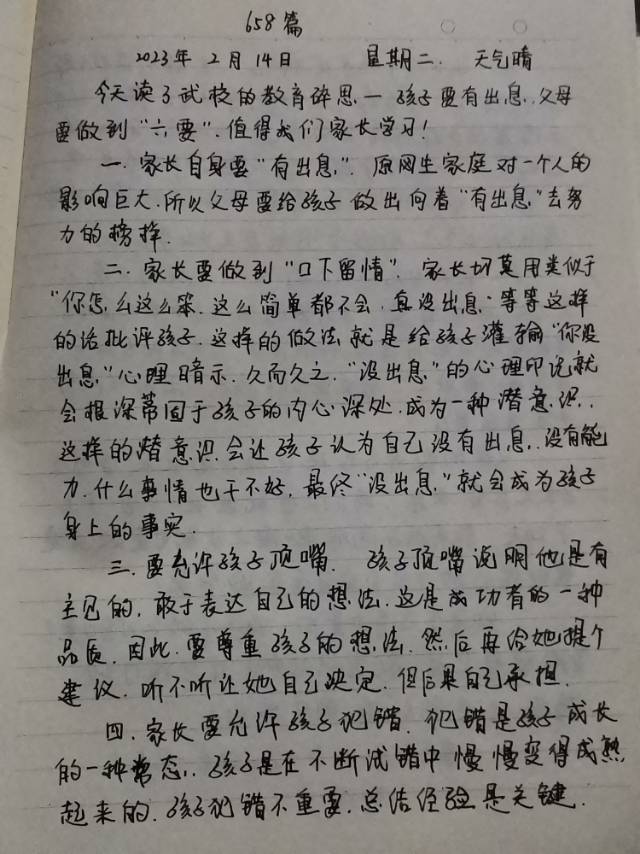 658篇
2023年2月14日 星期二. 天气晴
今天读了武校的教育碎思一孩子要有出息,父母
要做到"六要".值得我们家长学习!
一.家长自身要"有出息".原网生家庭对一个人的
影响巨大.所以父母要给孩子做出向着"有出息"去努
力的榜样.
二.家长要做到"口下留情".家长切莫用类似于
"你怎么这么笨.这么简单都不会,真没出息"等等这样
的话批评孩子.这样的做法就是给孩子灌输"你没
出息"心理暗示.久而久之."没出息"的心理印记就
会根深蒂固于孩子的内心深处.成为一种潜意识.
这样的潜意识会让孩子认为自己没有出息.没有能
力.什么事情也干不好.最终"没出息"就会成为孩子
身上的事实.
三.要允许孩子顶嘴. 孩子顶嘴说明他是有
主见的.敢于表达自己的想法.这是成功者的一种
品质.因此.要尊重孩子的想法.然后再给她提个
建议.听不听让她自己决定.但后果自己承担.
四.家长要允许孩子犯错.犯错是孩子成长
的一种常态.孩子是在不断试错中慢慢变得成熟
起来的.孩子犯错不重要.总结经验是关键.